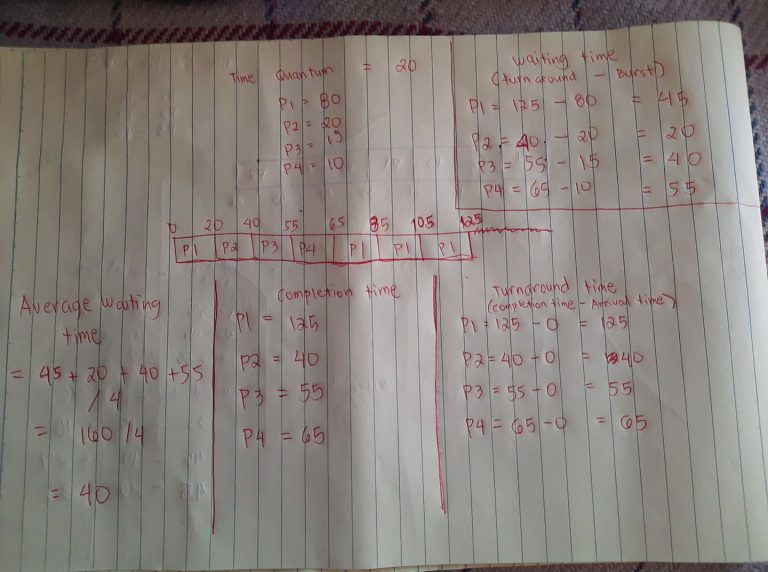 Time Quantum = 20
P1 = 80
P2 = 20
P3 = 15
P4 = 10
Waiting time
(turn ground - Burst)
P1 = 125 - 80 = 45
P2 = 40 - 20 = 20
P3 = 55 - 15 = 40
P4 = 65 - 10 = 55
0 20 40 55 65 85 105 125
P1 P2 P3 P4 P1 P1 P1
Average waiting
time
= 45 + 20 + 40 + 55
/ 4
= 160 / 4
= 40
Completion time
P1 = 125
P2 = 40
P3 = 55
P4 = 65
Turnground time
(completion time - Arrival time)
P1 = 125 - 0 = 125
P2 = 40 - 0 = 40
P3 = 55 - 0 = 55
P4 = 65 - 0 = 65